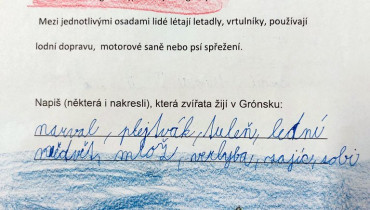 Mezi jednotlivými osadami lidé létají letadly, vrtulníky, používají
lodní dopravu, motorové saně nebo psí spřežení.
Napiš (některá i nakresli), která zvířata žijí v Grónsku:
narval, plejtvák, tuleň, lední
medvěť, mlož, verlyba, zajíc, sobi